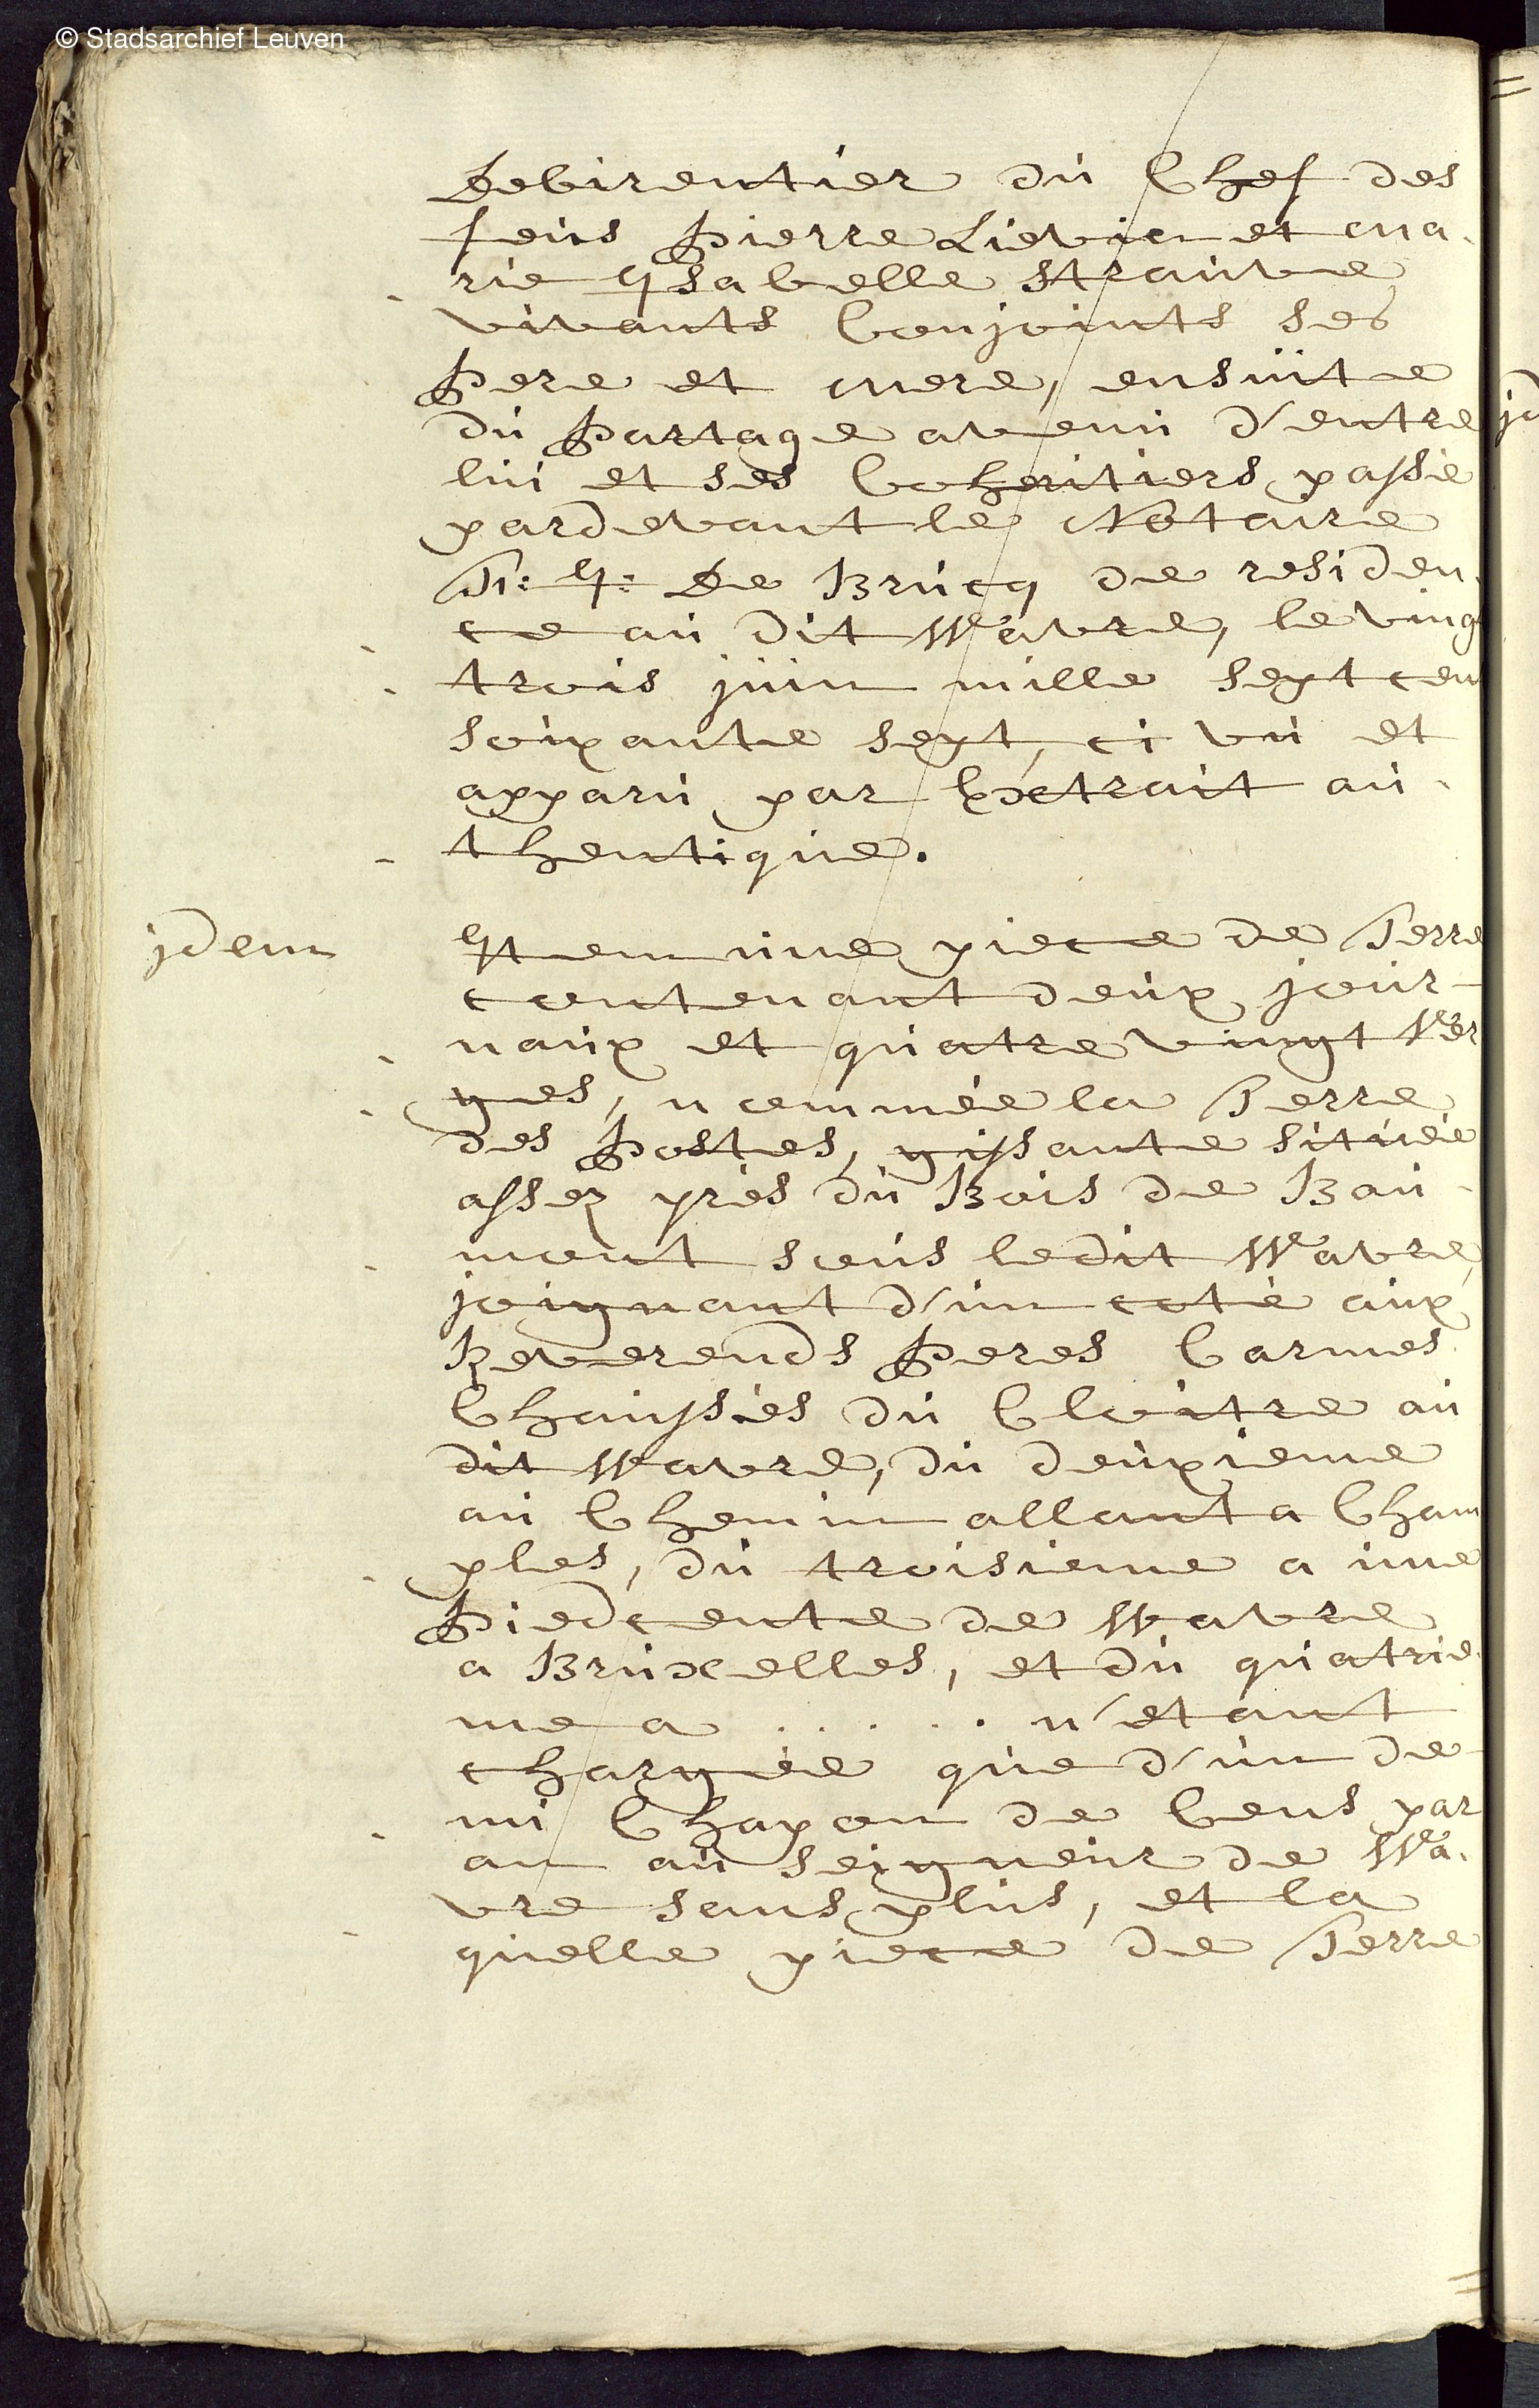 © Stadsarchief Leuven
Debirentier du Chef des
feus Pierre Lievin et ma-
rie Isabelle Strauve
vivants Conjoints ses
Pere et mere, ensuite
du Partage avenu d'entre
lui et ses Coheritiers passé
pardevant le Notaire
De Brucq de residen-
ce au dit Wavre, le ving
trois juin mille sept cen
soixante sept, ci vu et
apparu par Extrait au-
thentique.
jdem
Item une piece de Terre
contenant deux jour-
naux et quatre vingt Ver
ges, nommée la Terre
des Postes, gissante située
assez près du Bois de Bau-
mont sous ledit Wavre,
joignant d'un coté aux
Reverends Peres Carmes
Chaussés du Cloitre au
dit Wavre, du deuxieme
au Chemin allant a Cham
ples, du troisieme a une
Piedcente de Wavre
a Bruxelles, et du quatrie-
me a . . . . . n'etant
chargée que d'un de-
mi Chapon de Cens par
an au Seigneur de Wa-
vre sans plus, et la
quelle piece de Terre